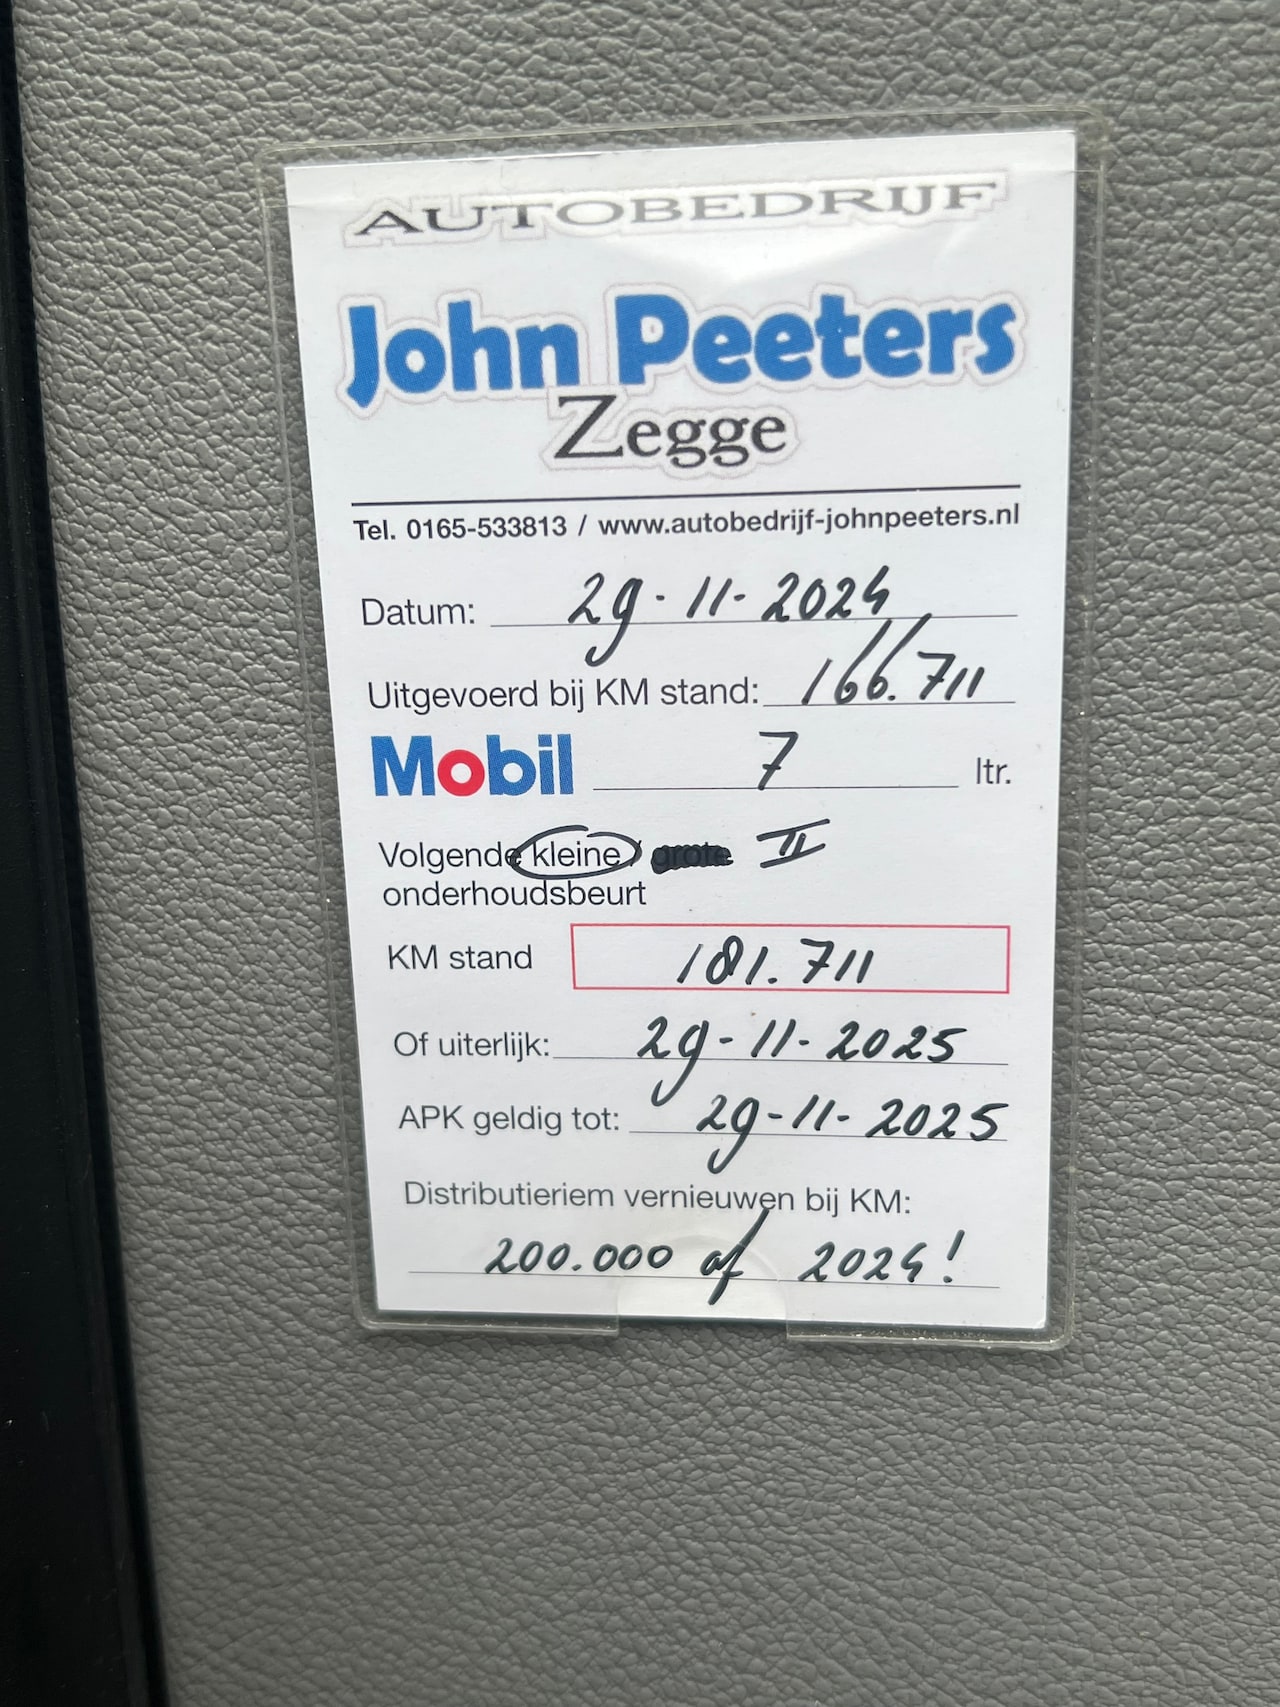 AUTOBEDRIJF
John Peeters
Zegge
Tel. 0165-533813 / www.autobedrijf-johnpeeters.nl
Datum: 29-11-2024
Uitgevoerd bij KM stand: 166.711
Mobil 7 ltr.
Volgende kleine / grote II
onderhoudsbeurt
KM stand 181.711
Of uiterlijk: 29-11-2025
APK geldig tot: 29-11-2025
Distributieriem vernieuwen bij KM:
200.000 of 2024!